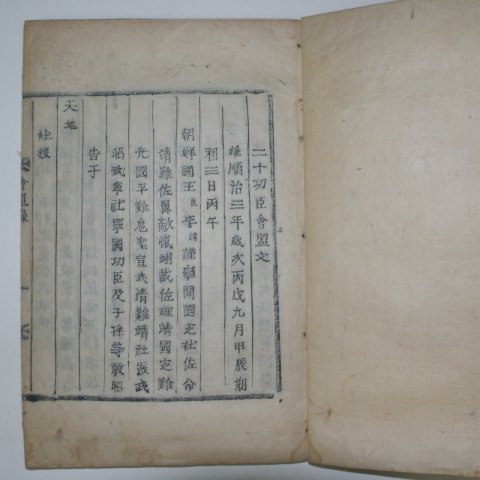 二十功臣會盟文
維順治三年歲次丙戌九月甲辰朔
初三日丙午
朝鮮國王臣李諱謹率開國定社佐命
靖難佐翼敵愾翊戴佐理靖國定難
光國平難扈聖宣武淸難靖社振武
昭武寧社寧國功臣及子孫等敢昭
告于
天地
社稷
會盟錄
一